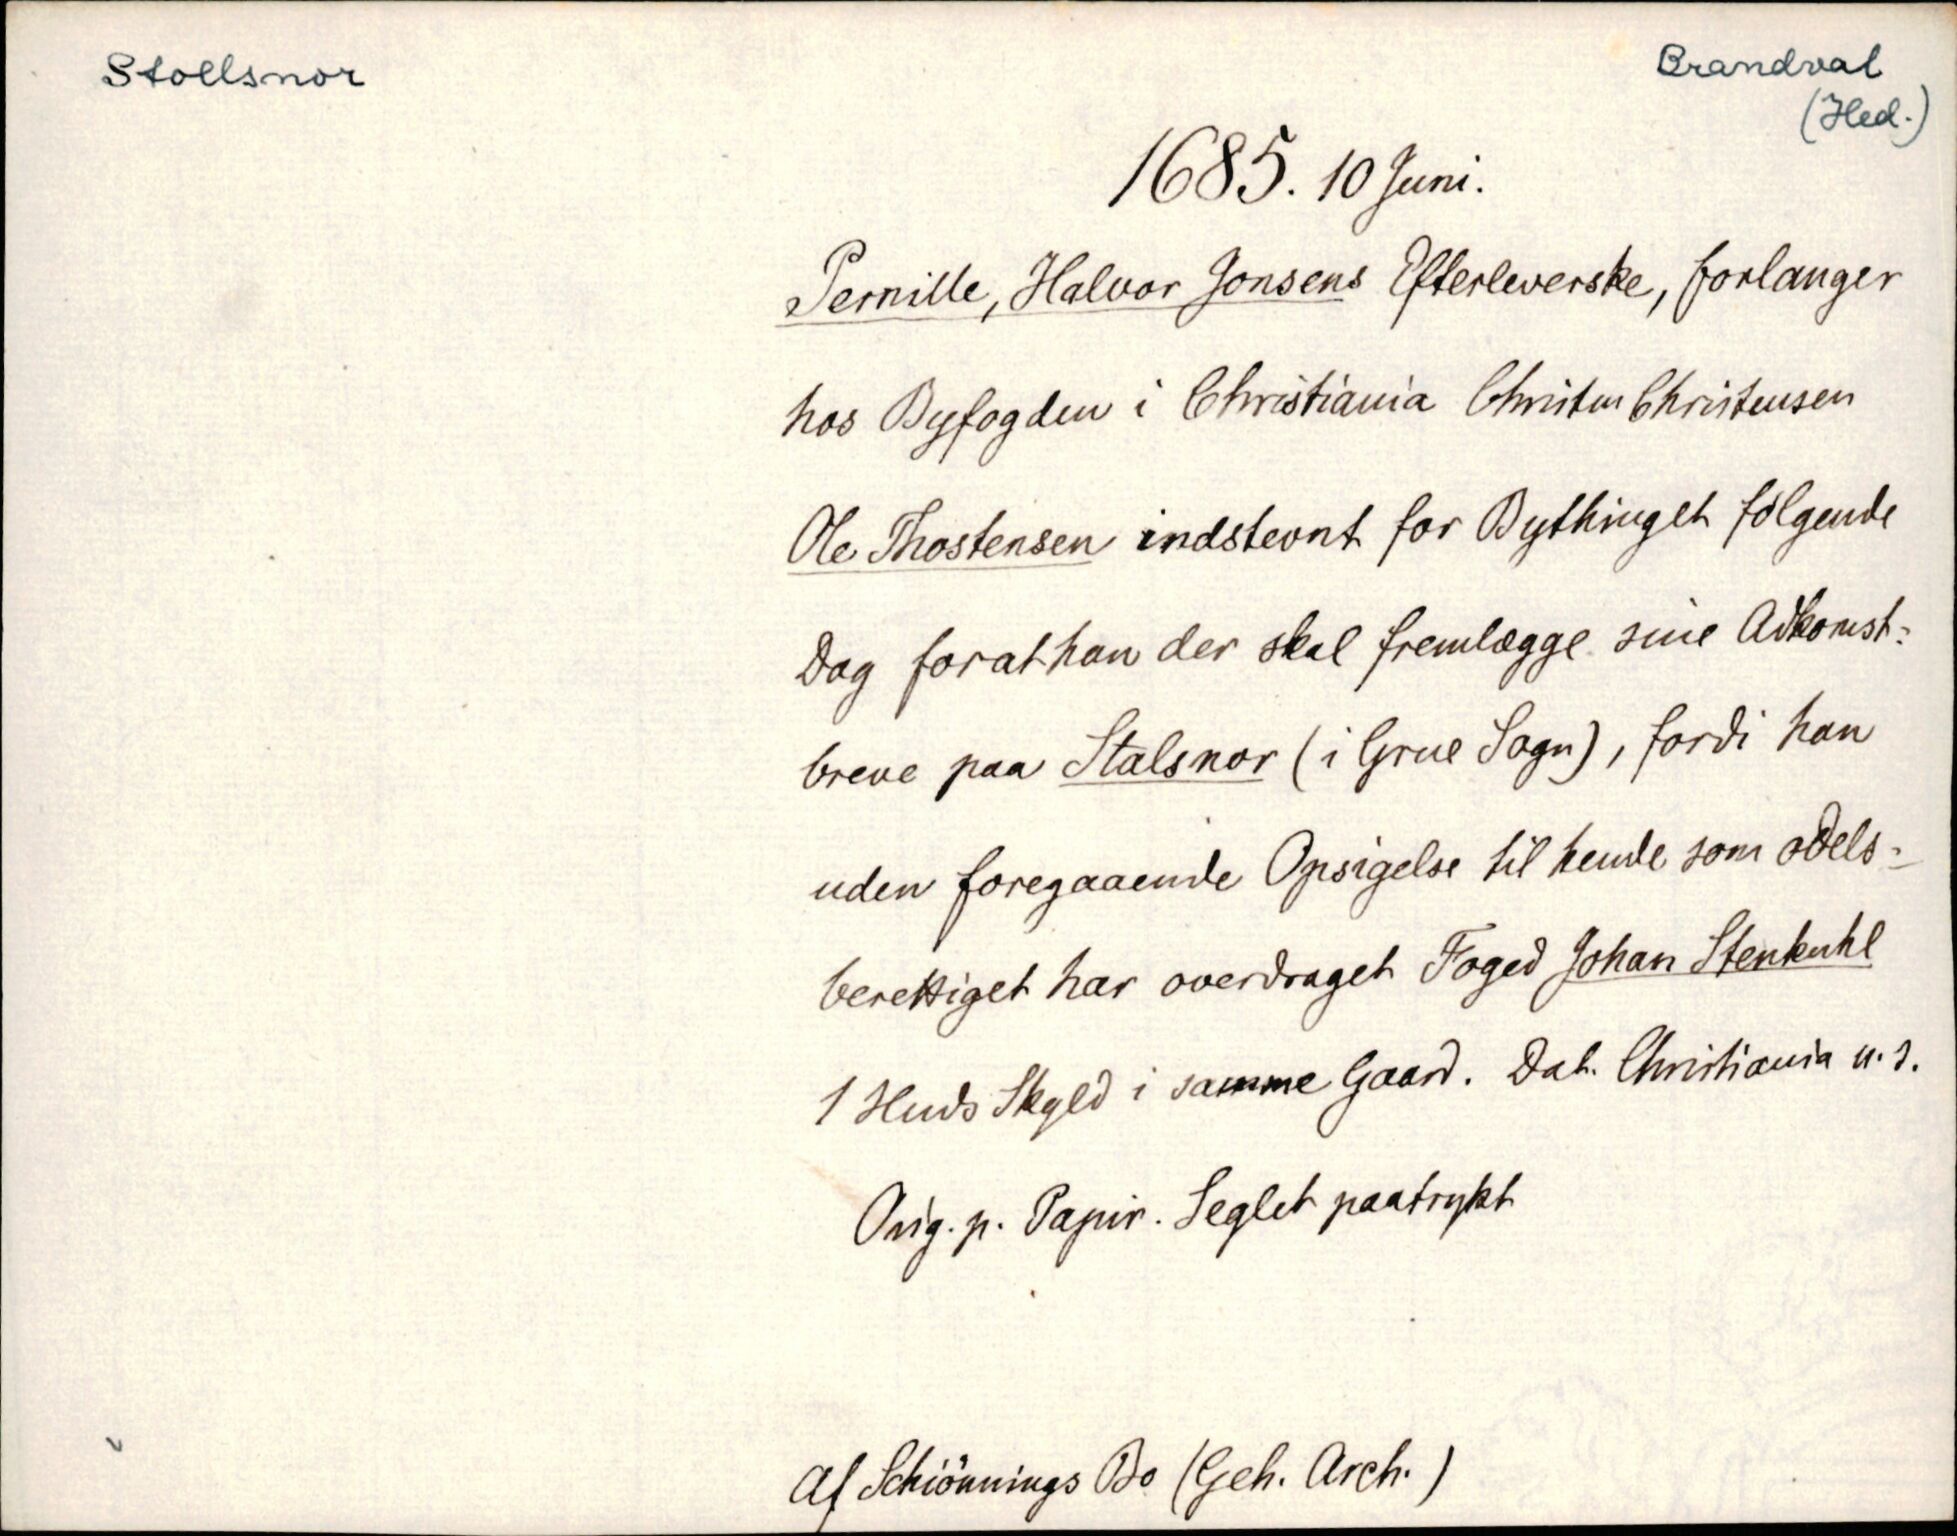 Stollsnor
Brandval
(Hed.)
1685. 10 Juni.
Pernille, Halvor Jonsens Efterleverske, forlanger
hos Byfogden i Christiania Christen Christensen
Ole Thostensen indstevnt for Bythinget følgende
Dag forat han der skal fremlægge sine Adkomst=
breve paa Stalsnor (i Grue Sogn), fordi han
uden foregaaende Opsigelse til hende som odels=
berettiget har overdraget Foged Johan Stenkuhl
1 Huds Skyld i samme Gaard. Dat. Christiania u. s.
Orig. p. Papir. Seglet paatrykt
Af Schiönnings Bo (Geh. Arch.)